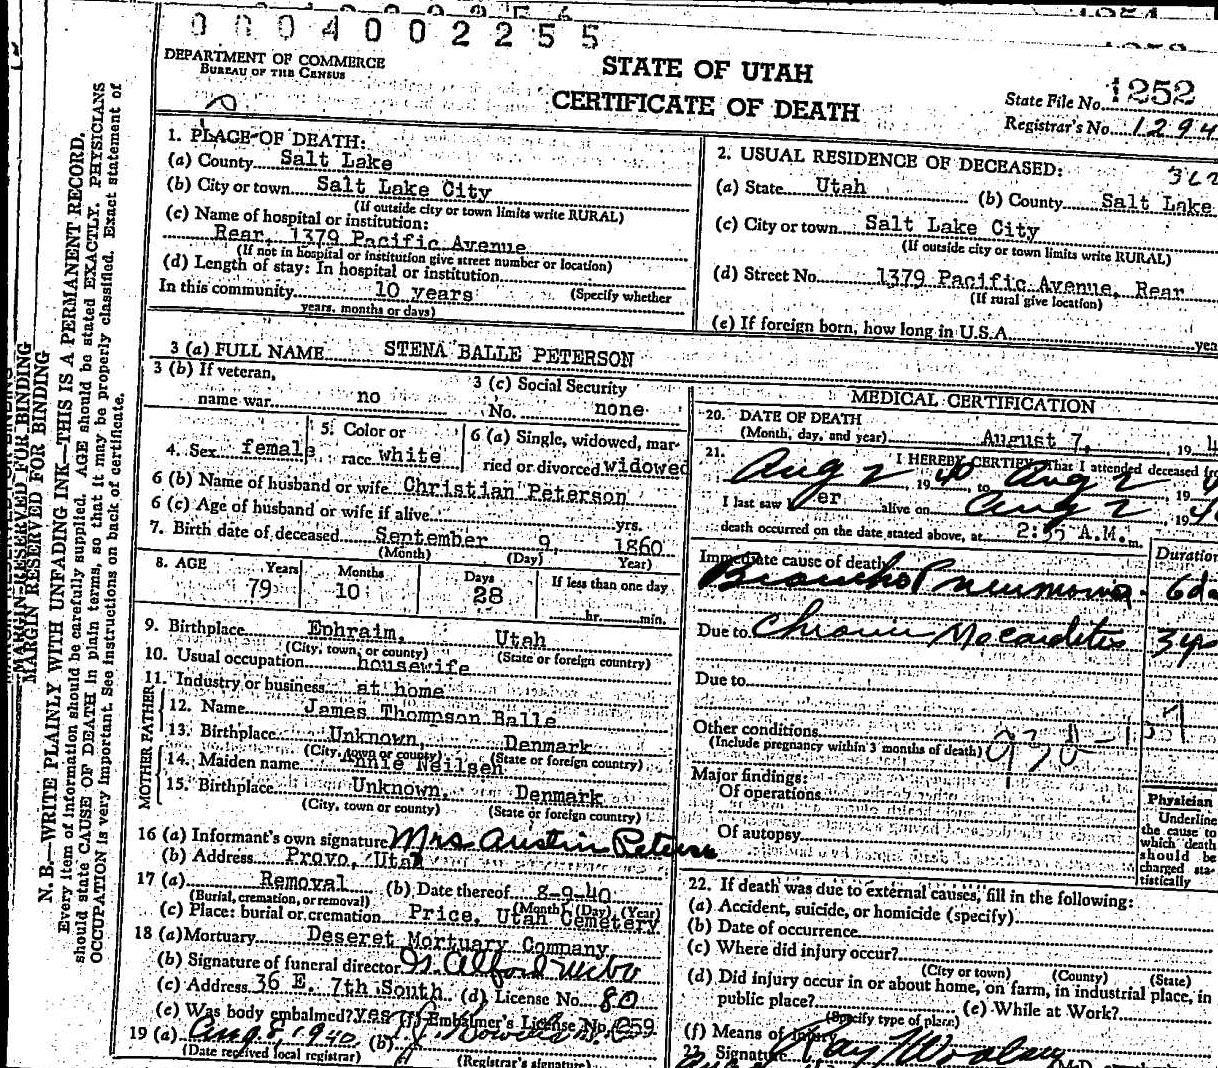 0004002255
DEPARTMENT OF COMMERCE
BUREAU OF THE CENSUS
STATE OF UTAH
CERTIFICATE OF DEATH
State File No. 1252
Registrar's No. 1294
1. PLACE OF DEATH:
(a) County Salt Lake
(b) City or town Salt Lake City
(If outside city or town limits write RURAL)
(c) Name of hospital or institution:
Rear, 1379 Pacific Avenue
(If not in hospital or institution give street number or location)
(d) Length of stay: In hospital or institution
In this community 10 years (Specify whether
years, months or days)
2. USUAL RESIDENCE OF DECEASED:
(a) State Utah (b) County Salt Lake
(c) City or town Salt Lake City
(If outside city or town limits write RURAL)
(d) Street No. 1379 Pacific Avenue, Rear
(If rural give location)
(e) If foreign born, how long in U.S.A.
3 (a) FULL NAME STENA BALLE PETERSON
3 (b) If veteran,
name war no
3 (c) Social Security
No. none
4. Sex female
5. Color or
race white
6 (a) Single, widowed, mar-
ried or divorced widowed
6 (b) Name of husband or wife Christian Peterson
6 (c) Age of husband or wife if alive yrs.
7. Birth date of deceased September 9, 1860
(Month) (Day) Year)
8. AGE Years Months Days If less than one day
79 10 28 hr. min.
9. Birthplace Ephraim, Utah
(City, town, or county) (State or foreign country)
10. Usual occupation housewife
11. Industry or business at home
FATHER
12. Name James Thompson Balle
13. Birthplace Unknown, Denmark
(City, town or county) (State or foreign country)
MOTHER
14. Maiden name Annie Neilsen
15. Birthplace Unknown, Denmark
(City, town or county) (State or foreign country)
16 (a) Informant's own signature Mrs Austin Peterson
(b) Address Provo, Utah
17 (a) Removal (b) Date thereof 8-9-40
(Burial, cremation, or removal) (Month) (Day) (Year)
(c) Place: burial or cremation Price, Utah Cemetery
18 (a) Mortuary Deseret Mortuary Company
(b) Signature of funeral director
(c) Address 36 E. 7th South (d) License No. 80
(e) Was body embalmed? yes (f) Embalmer's License No.
19 (a) Aug 8, 1940 (b)
(Date received local registrar) (Registrar's signature)
MEDICAL CERTIFICATION
20. DATE OF DEATH
(Month, day, and year) August 7, 19
21. I HEREBY CERTIFY That I attended deceased
Aug 2 1940, to Aug 2 19
I last saw er alive on Aug 2 19
death occurred on the date stated above, at 2:55 A.M. m.
Immediate cause of death Duration
Broncho Pneumonia 6 da
Due to Chronic Myocarditis 3 yrs
Due to
Other conditions
(Include pregnancy within 3 months of death)
Major findings:
Of operations
Of autopsy
Physician
Underline
the cause to
which death
should be
charged sta-
tistically
22. If death was due to external causes, fill in the following:
(a) Accident, suicide, or homicide (specify)
(b) Date of occurrence
(c) Where did injury occur?
(City or town) (County) (State)
(d) Did injury occur in or about home, on farm, in industrial place, in
public place? (e) While at Work?
(Specify type of place)
(f) Means of injury
23. Signature Ray Woolsey
MARGIN RESERVED FOR BINDING
N. B.—WRITE PLAINLY WITH UNFADING INK—THIS IS A PERMANENT RECORD.
Every item of information should be carefully supplied. AGE should be stated EXACTLY. PHYSICIANS
should state CAUSE OF DEATH in plain terms, so that it may be properly classified. Exact statement of
OCCUPATION is very important. See instructions on back of certificate.